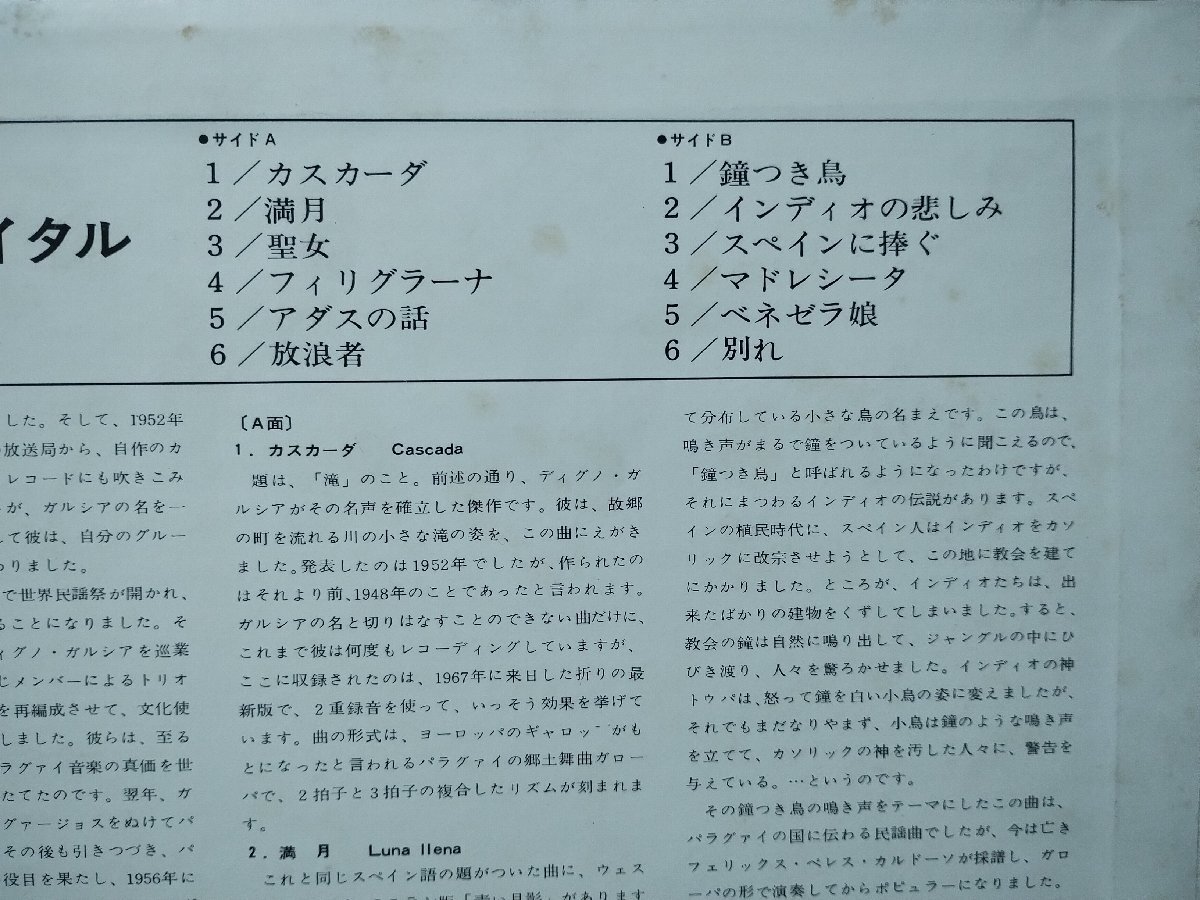 イタル
●サイドA
1／カスカーダ
2／満月
3／聖女
4／フィリグラーナ
5／アダスの話
6／放浪者
●サイドB
1／鐘つき鳥
2／インディオの悲しみ
3／スペインに捧ぐ
4／マドレシータ
5／ベネゼラ娘
6／別れ
した。そして、1952年
放送局から、自作のカ
レコードにも吹きこみ
が、ガルシアの名を一
て彼は、自分のグルー
わりました。
で世界民謡祭が開かれ、
ることになりました。そ
ィグノ・ガルシアを巡業
じメンバーによるトリオ
を再編成させて、文化使
しました。彼らは、至る
ラグァイ音楽の真価を世
たてたのです。翌年、ガ
グァージョスをぬけてパ
その後も引きつづき、パ
役目を果たし、1956年に
〔A面〕
1．カスカーダ　Cascada
題は、「滝」のこと。前述の通り、ディグノ・ガ
ルシアがその名声を確立した傑作です。彼は、故郷
の町を流れる川の小さな滝の姿を、この曲にえがき
ました。発表したのは1952年でしたが、作られたの
はそれより前、1948年のことであったと言われます。
ガルシアの名と切りはなすことのできない曲だけに、
これまで彼は何度もレコーディングしていますが、
ここに収録されたのは、1967年に来日した折りの最
新版で、2重録音を使って、いっそう効果を挙げて
います。曲の形式は、ヨーロッパのギャロッ゜がも
とになったと言われるパラグァイの郷土舞曲ガロー
パで、2拍子と3拍子の複合したリズムが刻まれま
す。
2．満　月　Luna llena
これと同じスペイン語の題がついた曲に、ウェス
版「青い月影」があります
て分布している小さな鳥の名まえです。この鳥は、
鳴き声がまるで鐘をついているように聞こえるので、
「鐘つき鳥」と呼ばれるようになったわけですが、
それにまつわるインディオの伝説があります。スペ
インの植民時代に、スペイン人はインディオをカソ
リックに改宗させようとして、この地に教会を建て
にかかりました。ところが、インディオたちは、出
来たばかりの建物をくずしてしまいました。すると、
教会の鐘は自然に鳴り出して、ジャングルの中にひ
びき渡り、人々を驚ろかせました。インディオの神
トゥパは、怒って鐘を白い小鳥の姿に変えましたが、
それでもまだなりやまず、小鳥は鐘のような鳴き声
を立てて、カソリックの神を汚した人々に、警告を
与えている。…というのです。
その鐘つき鳥の鳴き声をテーマにしたこの曲は、
パラグァイの国に伝わる民謡曲でしたが、今は亡き
フェリックス・ペレス・カルドーソが採譜し、ガロ
ーパの形で演奏してからポピュラーになりました。